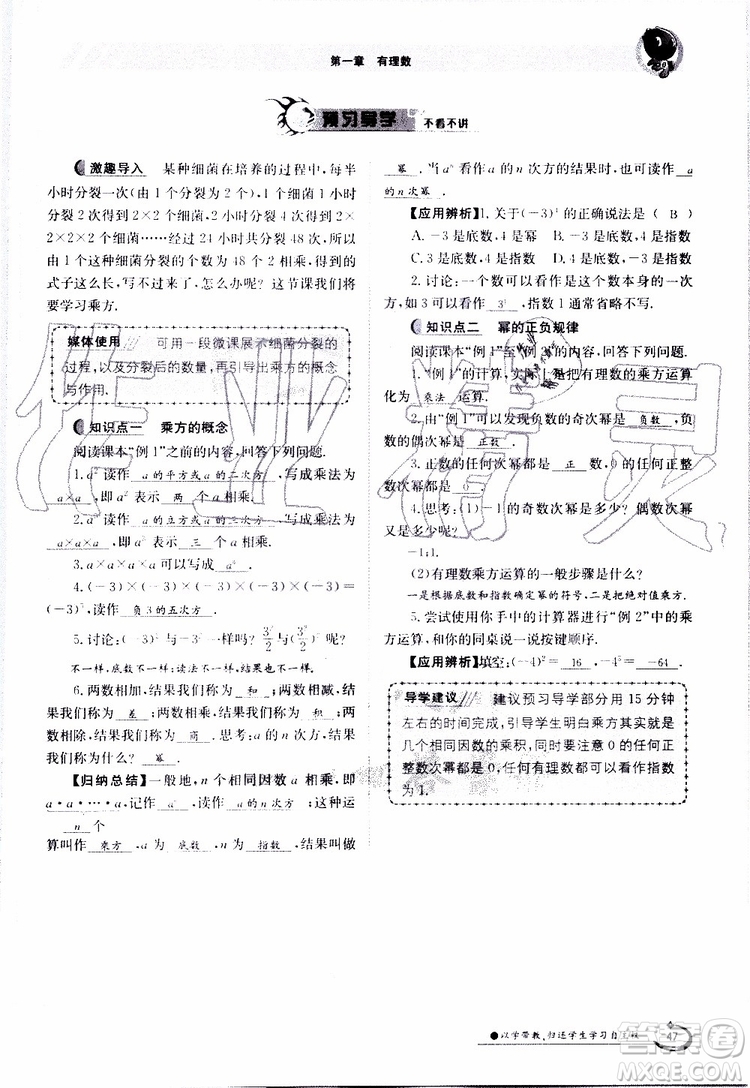 第一章 有理数
预习导学 不看不讲
激趣导入 某种细菌在培养的过程中,每半
小时分裂一次(由 1 个分裂为 2 个),1 小时
分裂 2 次得到 2×2 个细菌,1.5 小时得到 2
×2×2 个细菌……经过 24 小时共分裂 48 次,所以
由 1 个这种细菌分裂的个数为 48 个 2 相乘,得到的
式子这么长,写不过来,怎么办呢?这节课我们将
要学习乘方.
媒体使用 可用一段微课展示细菌分裂的
过程,以及分裂后的数量,再引导出乘方的概念
与作用.
知识点一 乘方的概念
阅读课本“例 1”之前的内容,回答下列问题.
1.a²读作 a的平方或a的二次方,写成乘法为
a×a,即 a²表示 两 个 a 相乘.
2.a³读作 a的立方或a的三次方,写成乘法为
a×a×a,即 a³表示 三 个 a 相乘.
3.a×a×a×a 记作 a⁴.
4.(-3)×(-3)×(-3)×(-3)×(-3)记作
(-3)⁵,读作 负3的五次方.
5.讨论:(-3)²与-3²一样吗?3²/2与(3/2)²呢?
不一样,底数不一样;读法不一样,结果也不一样.
6.两数相加,结果我们称为 和;两数相减,结
果我们称为 差;两数相乘,结果我们称为 积;两
数相除,结果我们称为 商.思考:a的n次方的结果
我们称为什么? 幂
【归纳总结】一般地,n 个相同因数 a 相乘,即
a·a·…·a,记作 aⁿ,读作 a的n次方,这种运
n 个
算叫作 乘方,a 为 底数,n 为 指数,结果叫做
幂.当 aⁿ看作 a 的 n 次方的结果时,也可读作 a
的n次幂.
【应用辨析】1.关于(-3)²的正确说法是( B )
A.-3 是底数,2 是幂 B.-3 是底数,2 是指数
C.3 是底数,2 是幂 D.3 是底数,2 是指数
2.讨论:一个数可以看作这个数本身的一次
方,如 3 可以看作 3¹,指数 1 通常省略不写.
知识点二 幂的正负规律
阅读课本“例 1”至“例 2”的内容,回答下列问题.
1.“例 1”的计算,实际上是把有理数的乘方运算
化为 乘法 运算.
2.由“例 1”可以发现负数的奇次幂是 负数,负
数的偶次幂是 正数.
3.正数的任何次幂都是 正,0 的任何正整
数次幂都是 0.
4.思考:(1)-1 的奇数次幂是多少?偶数次幂
是多少呢?
-1;1.
(2)有理数乘方运算的一般步骤是什么?
一是根据底数和指数确定幂的符号,二是把绝对值乘方.
5.尝试使用你手中的计算器进行“例 2”中的乘
方运算,和你的同桌说一说按键顺序.
【应用辨析】填空:(-4)²= 16,-4³= -64.
导学建议 建议预习导学部分用 15 分钟
左右的时间完成,引导学生明白乘方其实就是
几个相同因数的乘积,同时要注意 0 的任何正
整数次幂都是 0,任何数都可以看作指数
为 1.
以学带教、归还学生学习自主权
47
作业精灵